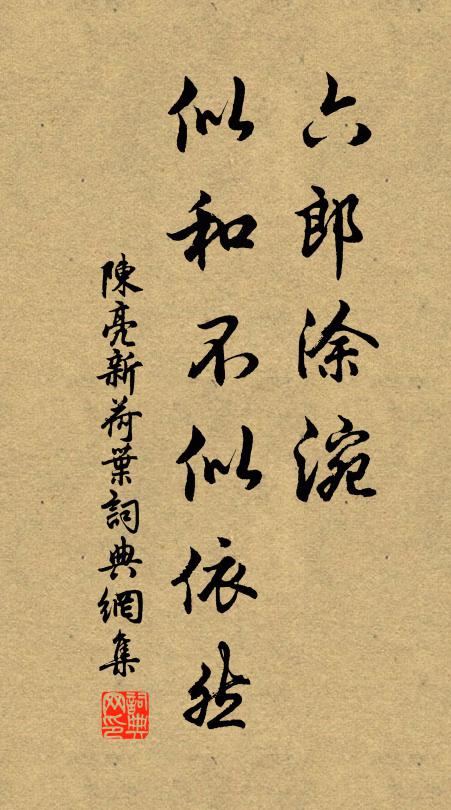 六郎涂涴
似和不似依然
陳亮新荷葉詞典網集
詞典網印